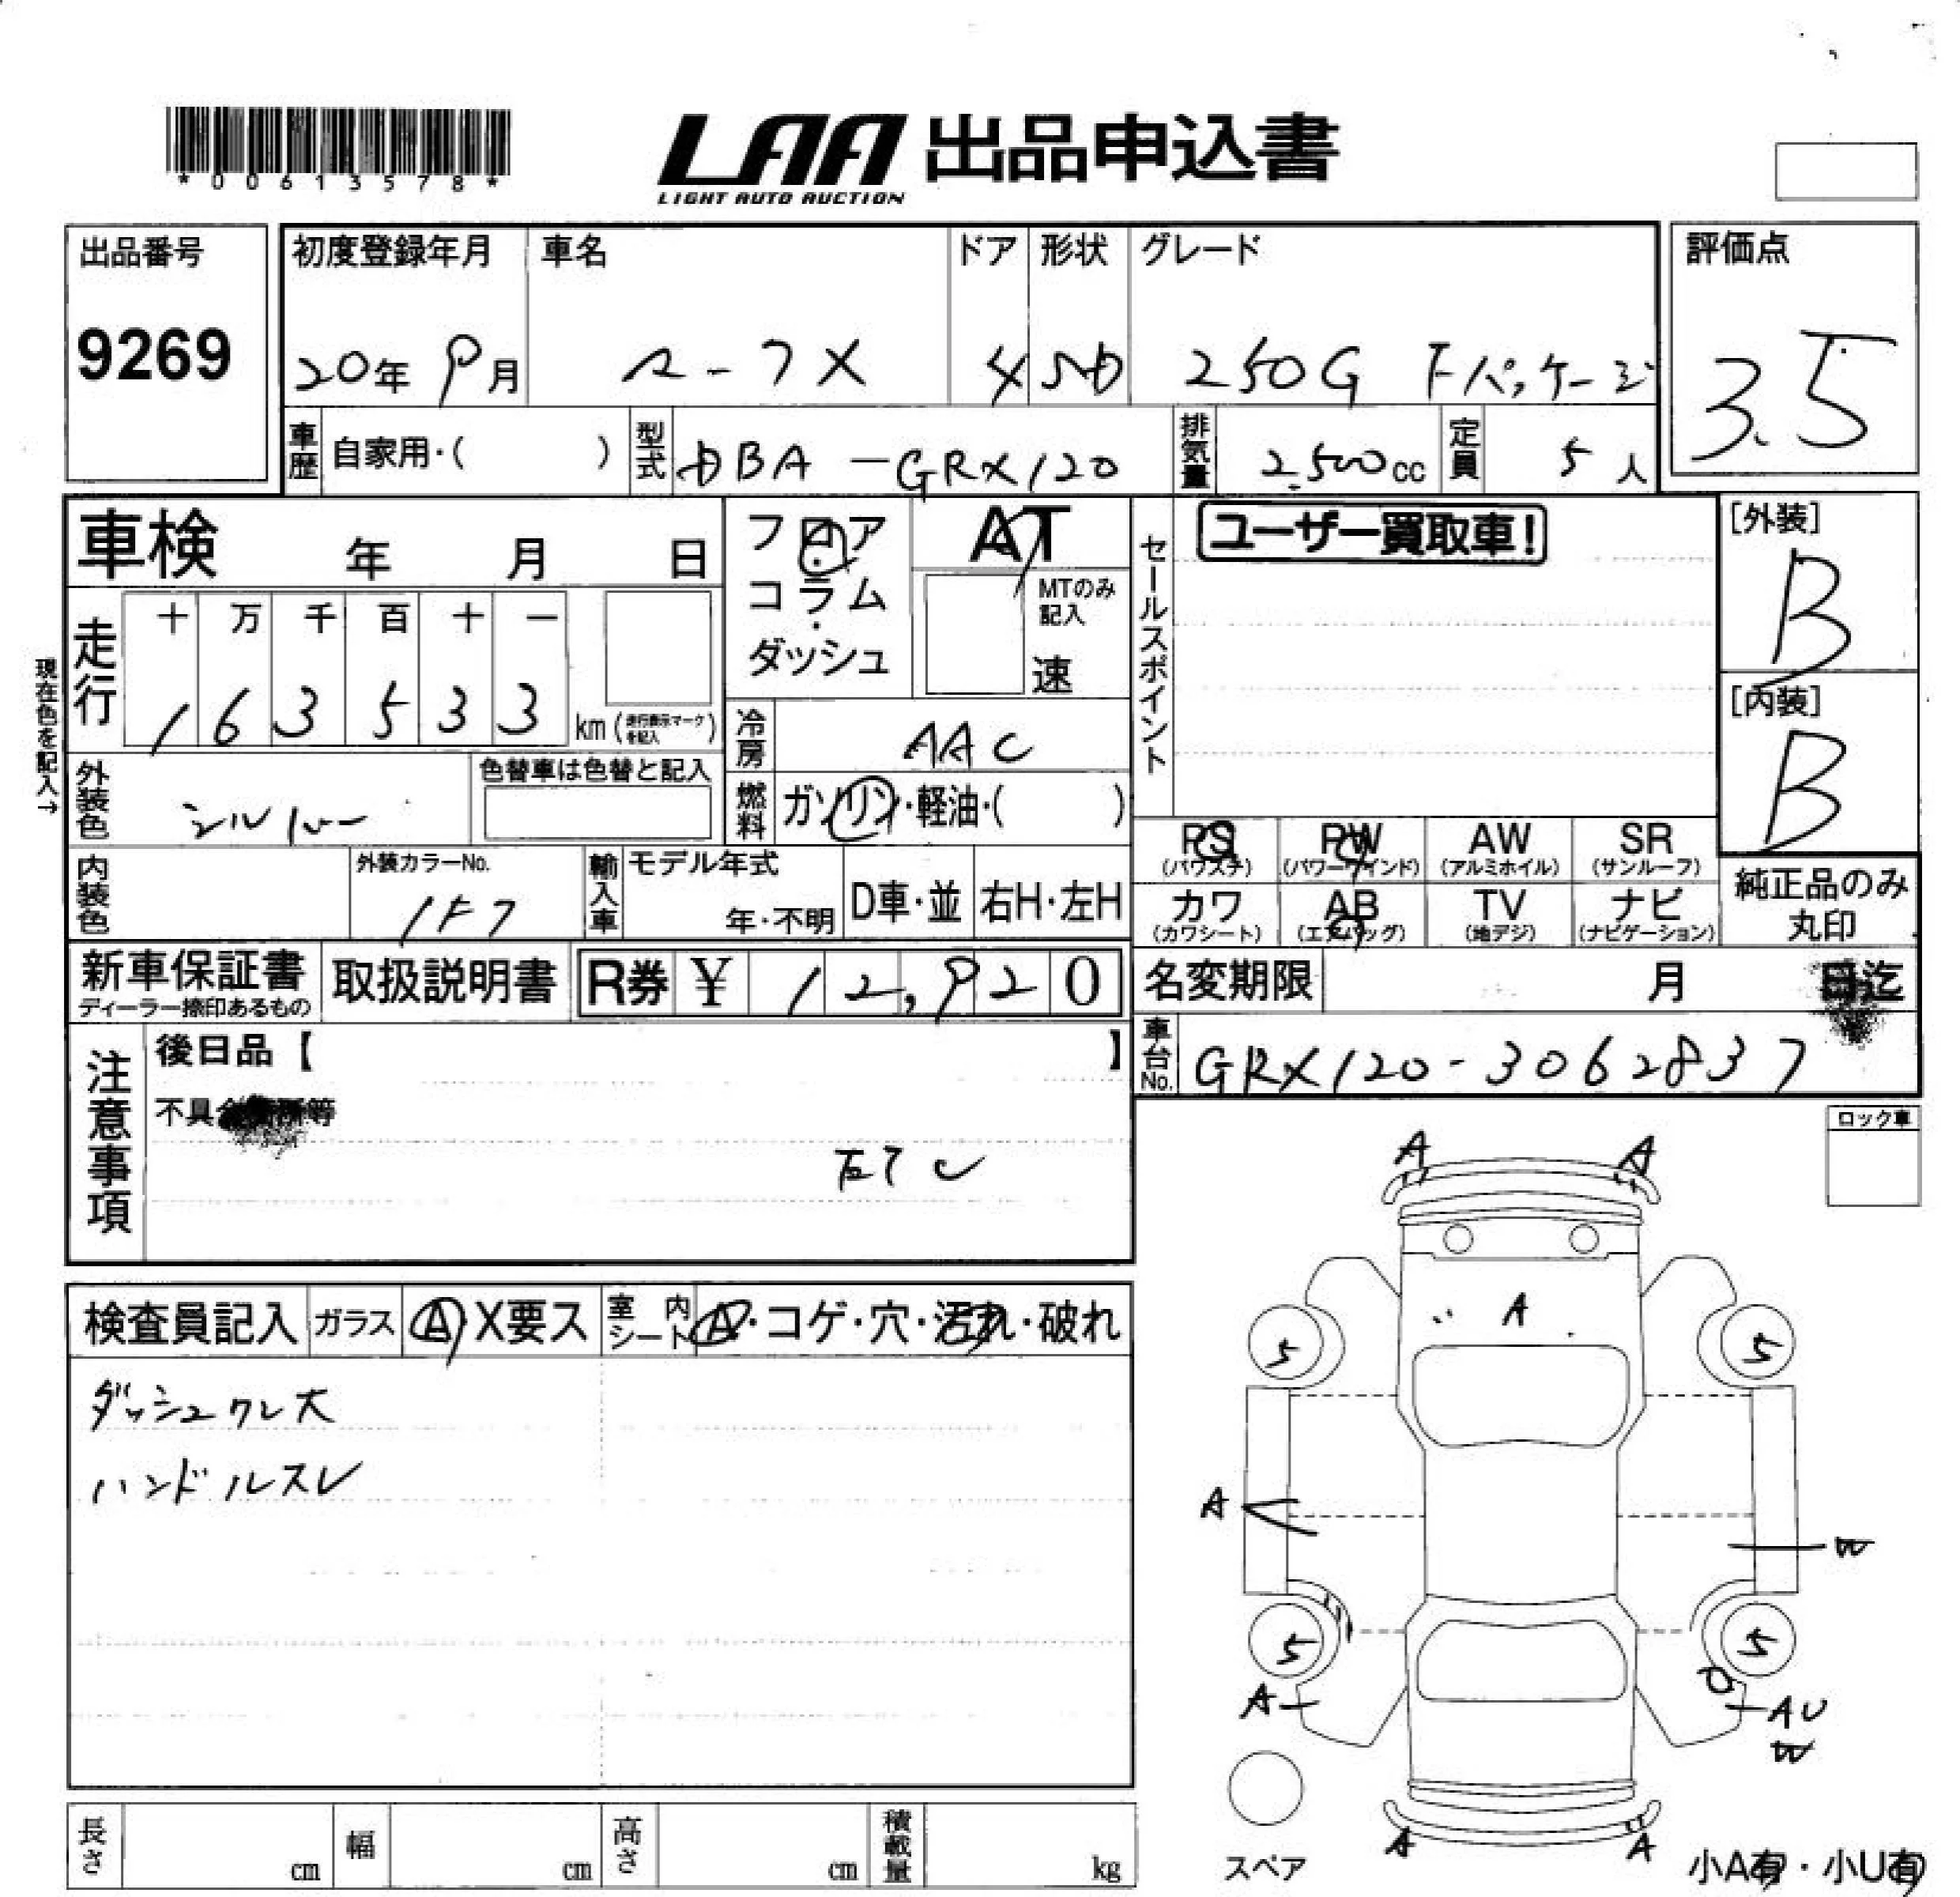 *00613578*
LAA 出品申込書
LIGHT AUTO AUCTION
出品番号
9269
初度登録年月 車名 ドア 形状 グレード
20年 9月 マークX 4 SD 250G Fパッケージ
評価点
3.5
車歴 自家用・( ) 型式 DBA-GRX120 排気量 2,500cc 定員 5人
車検 年 月 日
フロア・コラム・ダッシュ
AT
MTのみ記入
速
セールスポイント
ユーザー買取車!
[外装]
B
[内装]
B
現在色を記入→
走行 十 万 千 百 十 一
1 6 3 5 3 3 km (走行表示マークを記入)
冷房 AAC
外装色 シルバー
色替車は色替と記入
燃料 ガソリン・軽油・( )
PS PW AW SR
(パワステ) (パワーウインド) (アルミホイル) (サンルーフ)
カワ AB TV ナビ
(カワシート) (エアバッグ) (地デジ) (ナビゲーション)
純正品のみ
丸印
内装色 外装カラーNo. 1F7
輸入車 モデル年式 年・不明 D車・並 右H・左H
新車保証書 取扱説明書 R券 ¥ 12,920
ディーラー捺印あるもの
名変期限 月 日迄
車台No. GRX120-3062837
注意事項
後日品【 】
不具合箇所等
ETC
ロック車
検査員記入 ガラス A X要ス 室内シート A・コゲ・穴・汚れ・破れ
ダッシュワレ大
ハンドルスレ
A A
A
5 5
A W
5 5
A AU
W
A A
スペア
小A有・小U有
長さ cm 幅 cm 高さ cm 積載量 kg